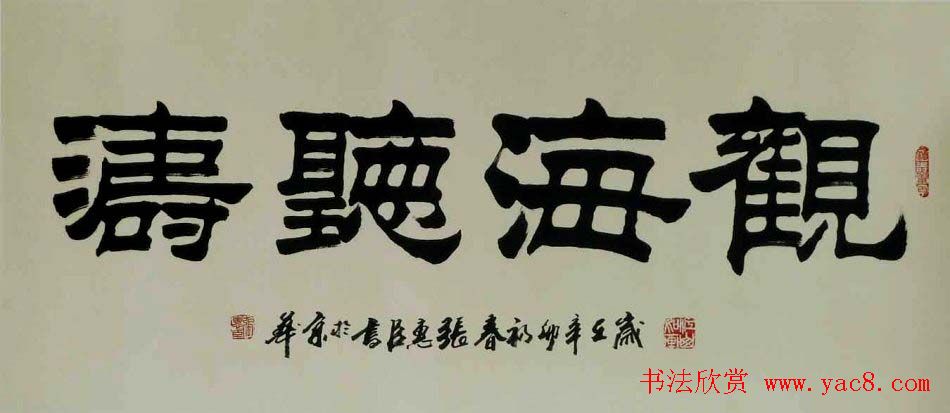 觀海聽濤
歲在辛卯初春張惠臣書於京華
书法欣赏 www.yac8.com